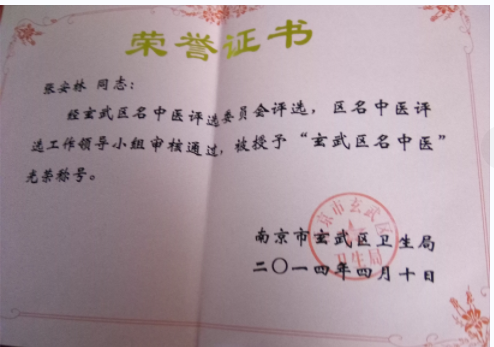 荣誉证书
张安林 同志：
经玄武区名中医评选委员会评选，区名中医评
选工作领导小组审核通过，被授予“玄武区名中医”
光荣称号。
南京市玄武区卫生局
二〇一四年四月十日